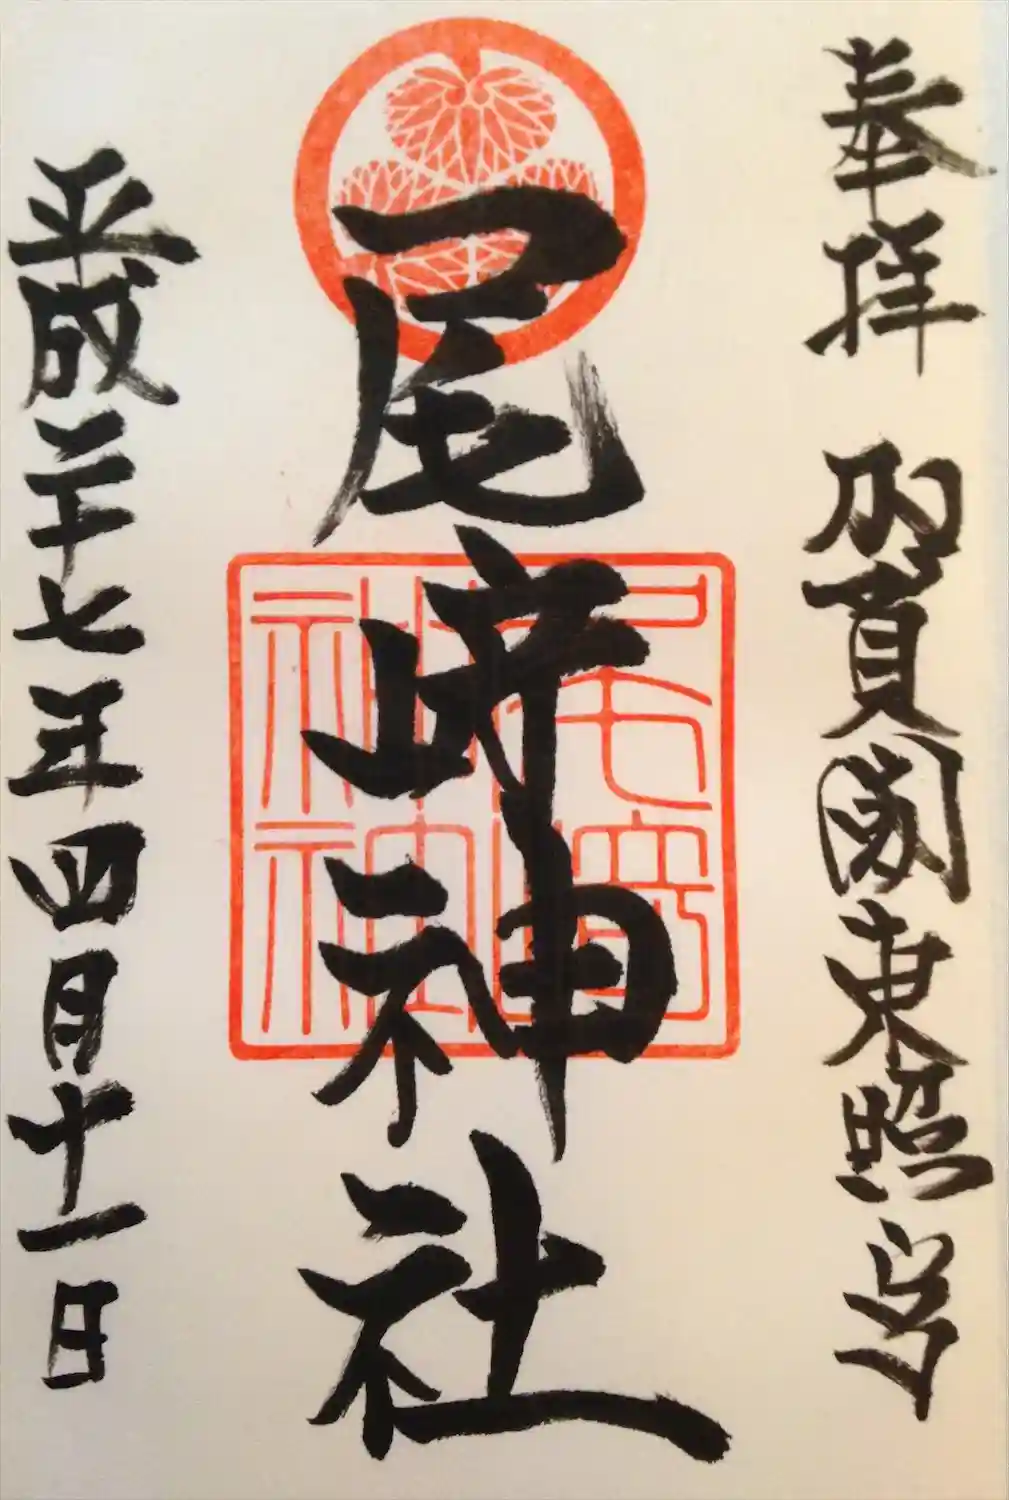 奉拝 加賀國東照宮
尾崎神社
尾崎神社
平成二十七年四月十一日